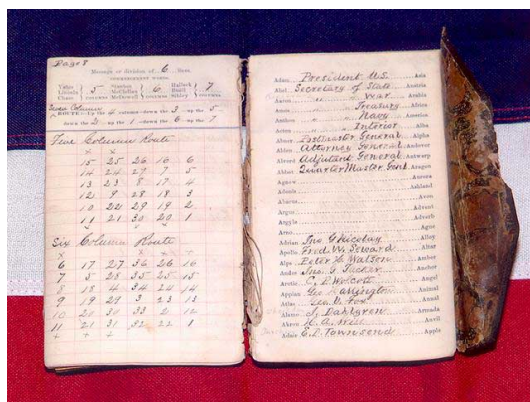 Page 8
Message or division of 6 lines.
COMMENCEMENT WORDS.
Yates Stanton Halleck
Lincoln 5 McClellan 6 Buell 7
Chase COLUMNS McDowell COLUMNS Sibley COLUMNS
ROUTE—Up the column—down the 3—up the 5
down the 2—up the 1—down the 6—up the 7
Five Column Route
15 25 26 16 6
14 24 27 7 5
13 23 8 17 4
12 9 28 18 3
10 22 29 19 2
11 21 30 20 1
Six Column Route
6 17 27 36 26 16
7 5 28 35 25 15
8 18 4 34 24 14
9 19 29 3 23 13
10 20 30 33 2 12
11 21 31 32 22 1
Adam President U.S. Asia
Abel Secretary of State Austria
Aaron " " War Arabia
" " Treasury Africa
" " Navy America
" " Interior
Abner Postmaster General Alpha
Abbes Attorney General Andover
Alvord Adjutant General Antwerp
Quarter Master Genl. Aragon
Agnew Aurora
Ashland
Abarus Avon
Argus Advent
Argyle Adverb
Arno Ague
Adrian Jno. G Nicolay Alley
Apollo Fred. W. Seward Altar
Alps Peter H Watson Amber
Andes Jno. G Tucker Anchor
Arctic C. P Wolcott Angel
Appian Geo Harrington Animal
Atlas Annual
Alamo J. Dahlgren Armada
Akron H. A. Wise Anvil
Adair E. D. Townsend Apple